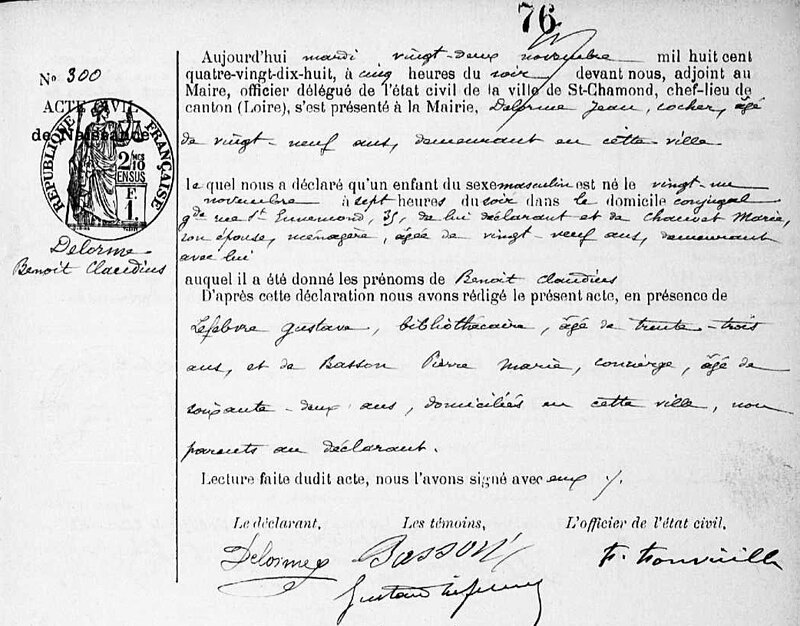 76
No 300
ACTE CIVIL
de Naissance
RÉPUBLIQUE FRANÇAISE
2 MES
10
EN SUS
F.
1.
Delorme
Benoit Claudius
Aujourd'hui mardi vingt-deux novembre mil huit cent
quatre-vingt-dix-huit, à cinq heures du soir devant nous, adjoint au
Maire, officier délégué de l'état civil de la ville de St-Chamond, chef-lieu de
canton (Loire), s'est présenté à la Mairie, Delorme Jean, cocher, âgé
de vingt-neuf ans, demeurant en cette ville
lequel nous a déclaré qu'un enfant du sexe masculin est né le vingt-un
novembre à sept heures du soir dans le domicile conjugal
gde rue St Ennemond, 35, de lui déclarant et de Chauvet Marie,
son épouse, ménagère, âgée de vingt-neuf ans, demeurant
avec lui
auquel il a été donné les prénoms de Benoit Claudius
D'après cette déclaration nous avons rédigé le présent acte, en présence de
Lefebvre Gustave, bibliothécaire, âgé de trente-trois
ans, et de Basson Pierre Marie, concierge, âgé de
soixante-deux ans, domiciliés en cette ville, non
parents au déclarant.
Lecture faite dudit acte, nous l'avons signé avec eux
Le déclarant, Les témoins, L'officier de l'état civil.
Delorme Basson
Gustave Lefebvre